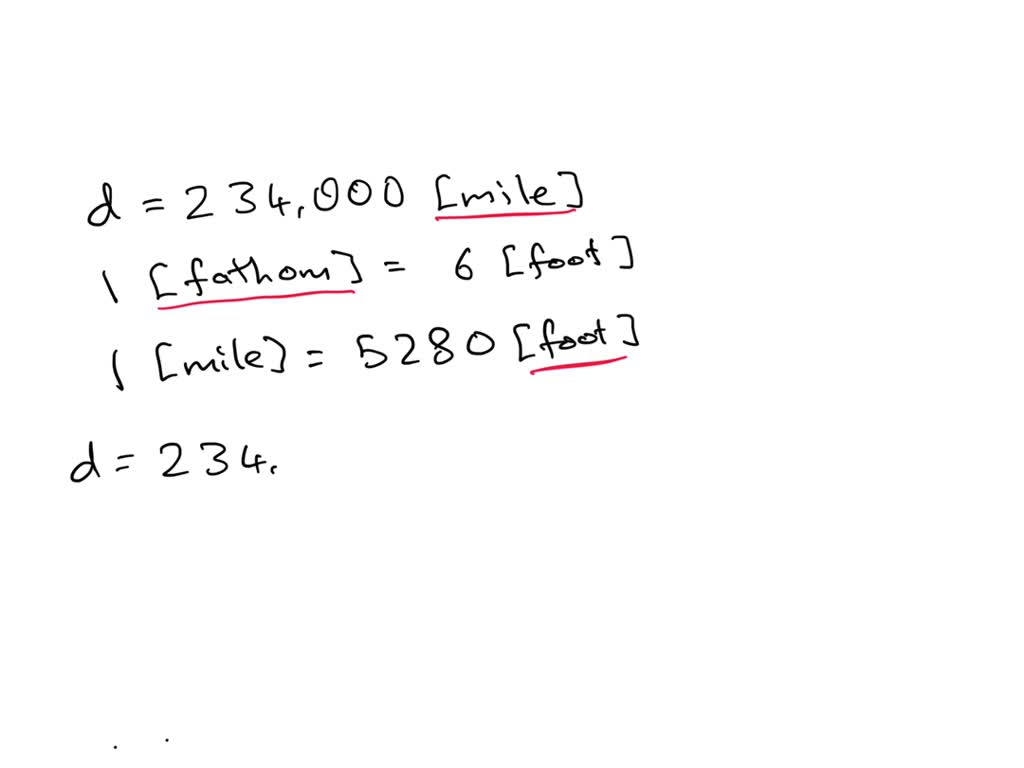 d = 234,000 [mile]
1 [fathom] = 6 [foot]
1 [mile] = 5280 [foot]
d = 234,